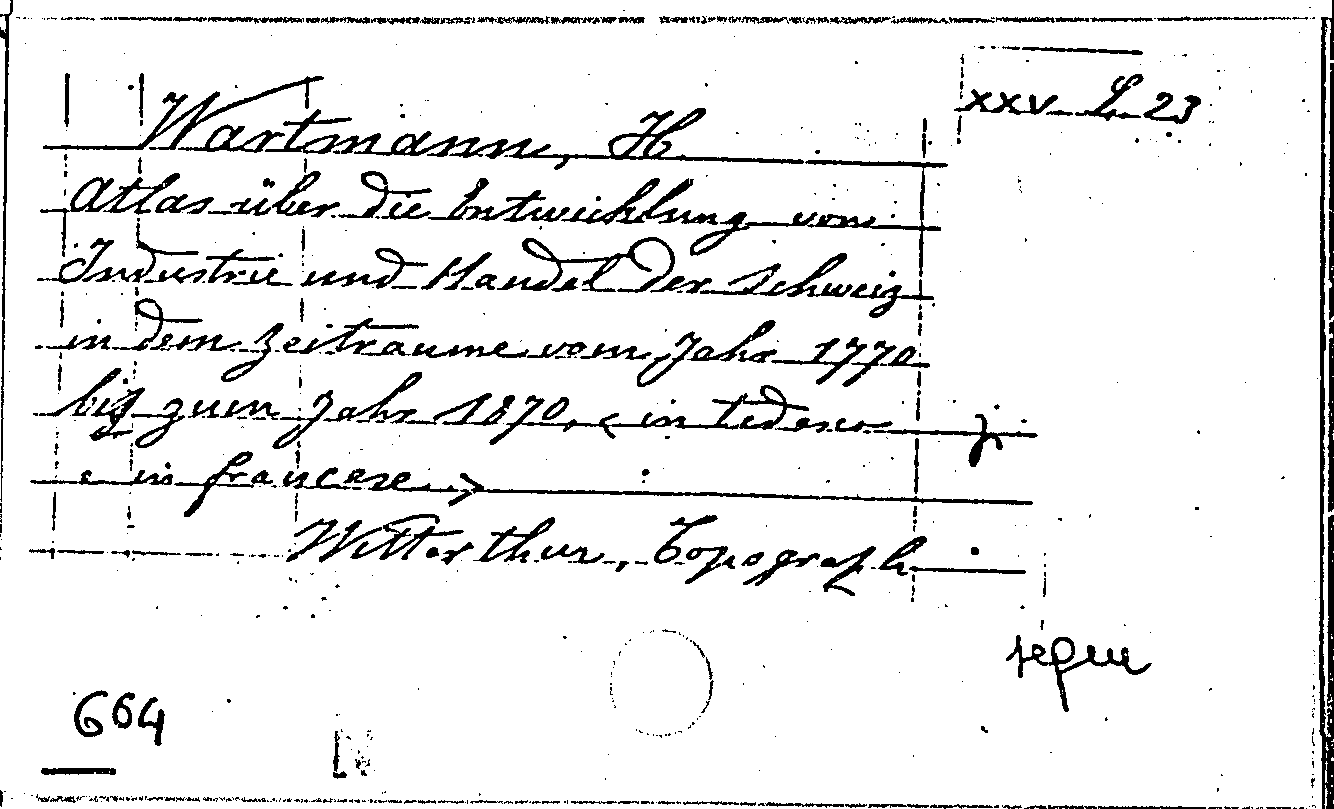 XXV. L. 23
Wartmann, H.
Atlas über die Entwicklung vom
Industrie und Handel der Schweiz
in dem Zeitraume vom Jahr 1770
bis zum Jahr 1870. < in tedesco
e in francese >
Witterthur, Topograph.
segue
664